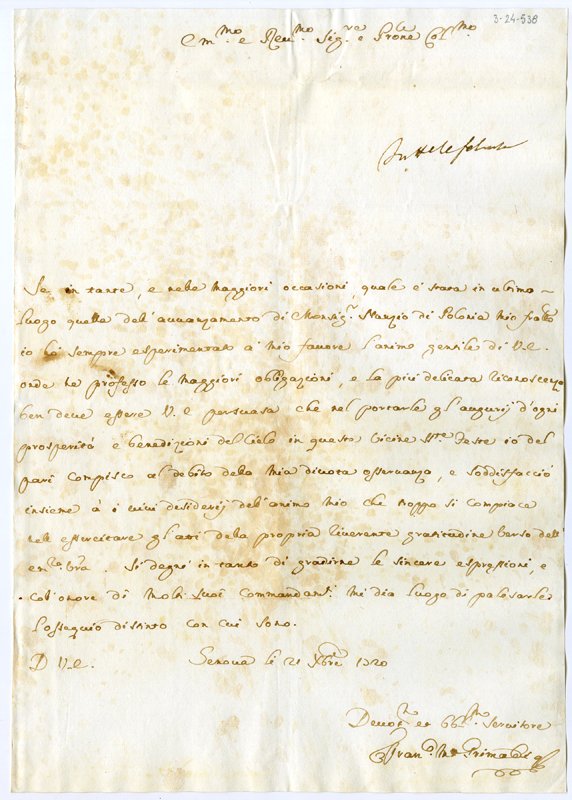 3-24-538
Em.mo e Reu.mo Sig.re e Prone Col.mo
Se in tante, e nelle maggiori occasioni, quale è stata in ultimo
luogo quella dell'auuanzamento di Monsig.r Nunzio di Polonia mio fratello
io hò sempre esperimentato à mio fauore l'animo gentile di V.E.
onde ne professo le maggiori obligazioni, e la più delicata riconoscenza
ben deue essere V.E. persuasa che nel portarle gl'augurij d'ogni
prosperità e benedizioni del Cielo in queste vicine S.te Feste io del
pari compisco al debito della mia diuota osseruanza, e soddisfaccio
insieme à i viui desiderij dell'animo mio che troppo si compiace
nell'essercitare gl'atti della propria riuerente gratitudine verso dell'
. Si degni in tanto di gradirne le sincere espressioni, e
coll'onore di molti suoi commandam.ti mi dia luogo di palesarle
l'ossequio distinto con cui sono.
D V.E. Genoua li 21 Xbre 1720
Deuot.mo et Obb.mo Seruitore
Fran.co M.a Grimaldi